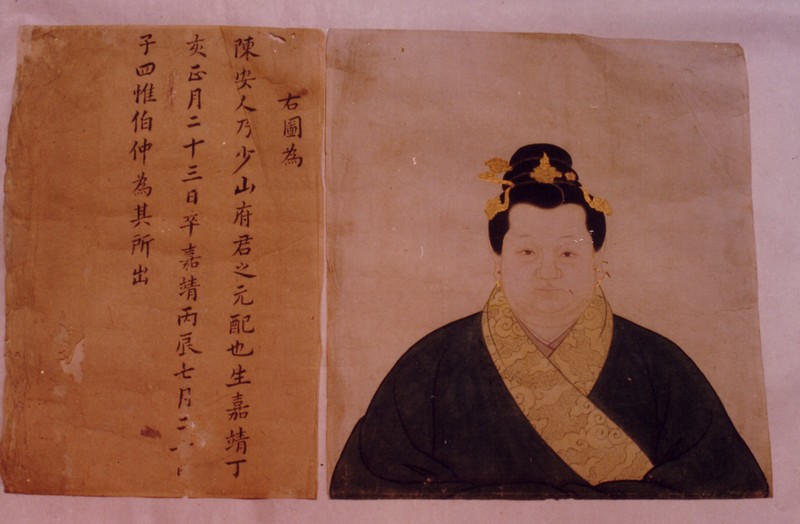 右圖為
陳安人乃少山府君之元配也生嘉靖丁
亥正月二十三日卒嘉靖丙辰七月二十
子四惟伯仲為其所出